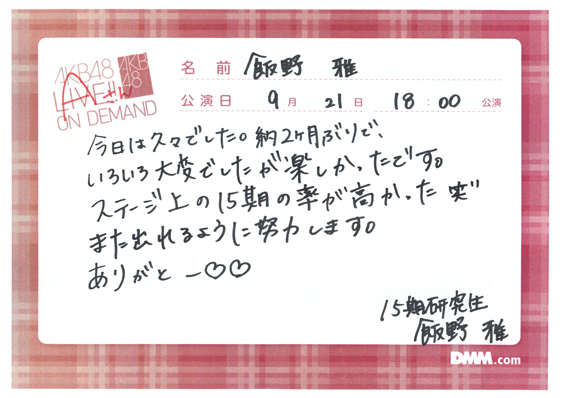 AKB48
LIVE!!
ON DEMAND
AKB
48
さん
名前 飯野 雅
公演日 9月 21日 18:00 公演
今日は久々でした。約2ヶ月ぶりで、
いろいろ大変でしたが楽しかったです。
ステージ上の15期の率が高かった 笑
また出れるように努力します。
ありがとー♡♡
15期研究生
飯野 雅
DMM.com